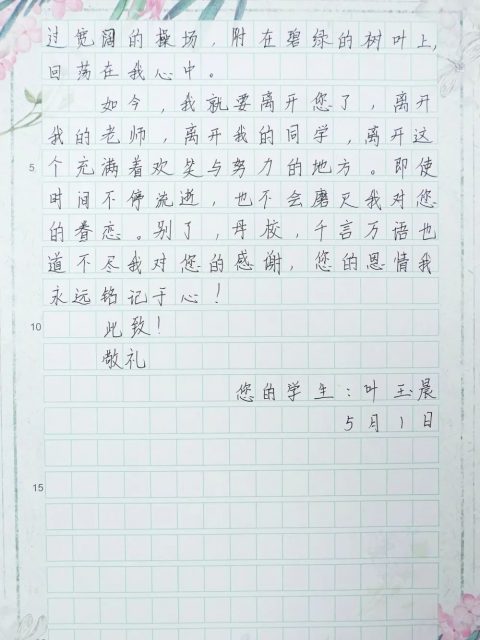 过宽阔的操场，附在碧绿的树叶上，
回荡在我心中。
如今，我就要离开您了，离开
我的老师，离开我的同学，离开这
5 个充满着欢笑与努力的地方。即使
时间不停流逝，也不会磨灭我对您
的眷恋。别了，母校，千言万语也
道不尽我对您的感谢，您的恩情我
永远铭记于心！
10 此致！
敬礼
您的学生：叶玉晨
5月1日
15